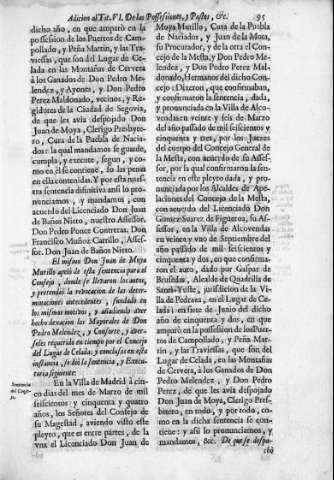 Adicion al Tit. VI. De las Possessiones, y Pastos, &c. 95
dicho año, en que amparò en la
possesion de los Puertos de Cam-
pollado, y Peña Martin, y las Tra-
viessas, que son del Lugar de Ce-
lada en las Montañas de Cervera
à los Ganados de Don Pedro Me-
lendez, y Ayones, y Don Pedro
Perez Maldonado, vecinos, y Re-
gidores de la Ciudad de Segovia,
de que les avia despojado Don
Juan de Moya, Clerigo Presbyte-
ro, Cura de la Puebla de Nacia-
dos: la qual mandaron se guarde,
cumpla, y execute, segun, y co-
mo en ella se contiene, so las penas
en ella contenidas. Y por esta nues-
tra sentencia difinitiva ansi lo pro-
nunciamos, y mandamos, con
acuerdo del Licenciado Don Juan
de Baños Nieto, nuestro Assessor.
Don Pedro Ponce Contreras. Don
Francisco Muñoz Carrillo, Asses-
sor. Don Juan de Baños Nieto.
El mismo Don Juan de Moya
Murillo apelò de esta sentencia para el
Consejo, donde se llevaron los autos,
y pretendiò la revocacion de las deter-
minaciones antecedentes, fundado en
los mismos motivos, y añadiendo aver
hecho dexacion los Mayorales de Don
Pedro Melendez, y Consorte, y aver-
seles requerido en tiempo por el Concejo
del Lugar de Celada: y conclusa en esta
instancia, se diò la Sentencia, y Execu-
toria siguiente:
Sentencia
del Conse-
jo.
En la Villa de Madrid à cin-
co dias del mes de Marzo de mil
seiscientos y cinquenta y quatro
años, los Señores del Consejo de
su Magestad, aviendo visto este
pleyto, que es entre partes, de la
una el Licenciado Don Juan de
Moya Murillo, Cura de la Puebla
de Naciados, y Juan de la Mota,
su Procurador, y de la otra el Con-
cejo de la Mesta, y Don Pedro Me-
lendez, y Don Pedro Perez Mal-
donado, Hermanos del dicho Con-
cejo: Dixeron, que confirmaban,
y confirmaron la sentencia, dada,
y pronunciada en la Villa de Alco-
vendas en veinte y seis de Marzo
del año passado de mil seiscientos
y cinquenta y tres, por los Juezes
del cuerpo del Concejo General de
la Mesta, con acuerdo de su Asses-
sor, por la qual confirmaron la sen-
tencia en este pleyto dada, y pro-
nunciada por los Alcaldes de Ape-
laciones del Concejo de la Mesta,
con acuerdo del Licenciado Don
Gomez Suarez de Figueroa, su As-
sessor, en la Villa de Alcovendas
en veinte y uno de Septiembre del
año passado de mil seiscientos y
cinquenta y dos, en que confirma-
ron el auto, dado por Gaspar de
Alcalde de Quadrilla de
jurisdicion de la Vi-
lla de Pedraza, en el Lugar de Ce-
lada en siete de Junio del dicho
año de cinquenta y dos, en que
amparò en la possesion de los Puer-
tos de Campollado, y Peña Mar-
tin, y las Traviessas, que son del
Lugar de Celada, en las Montañas
de Cervera, à los Ganados de Don
Pedro Melendez, y Don Pedro
Perez, de que les avia despojado
Don Juan de Moya, Clerigo Pres-
bitero, en todo, y por todo, co-
mo en la dicha sentencia se con-
tiene: y assi lo pronunciamos, y
mandamos, &c. De que se despa-
chò